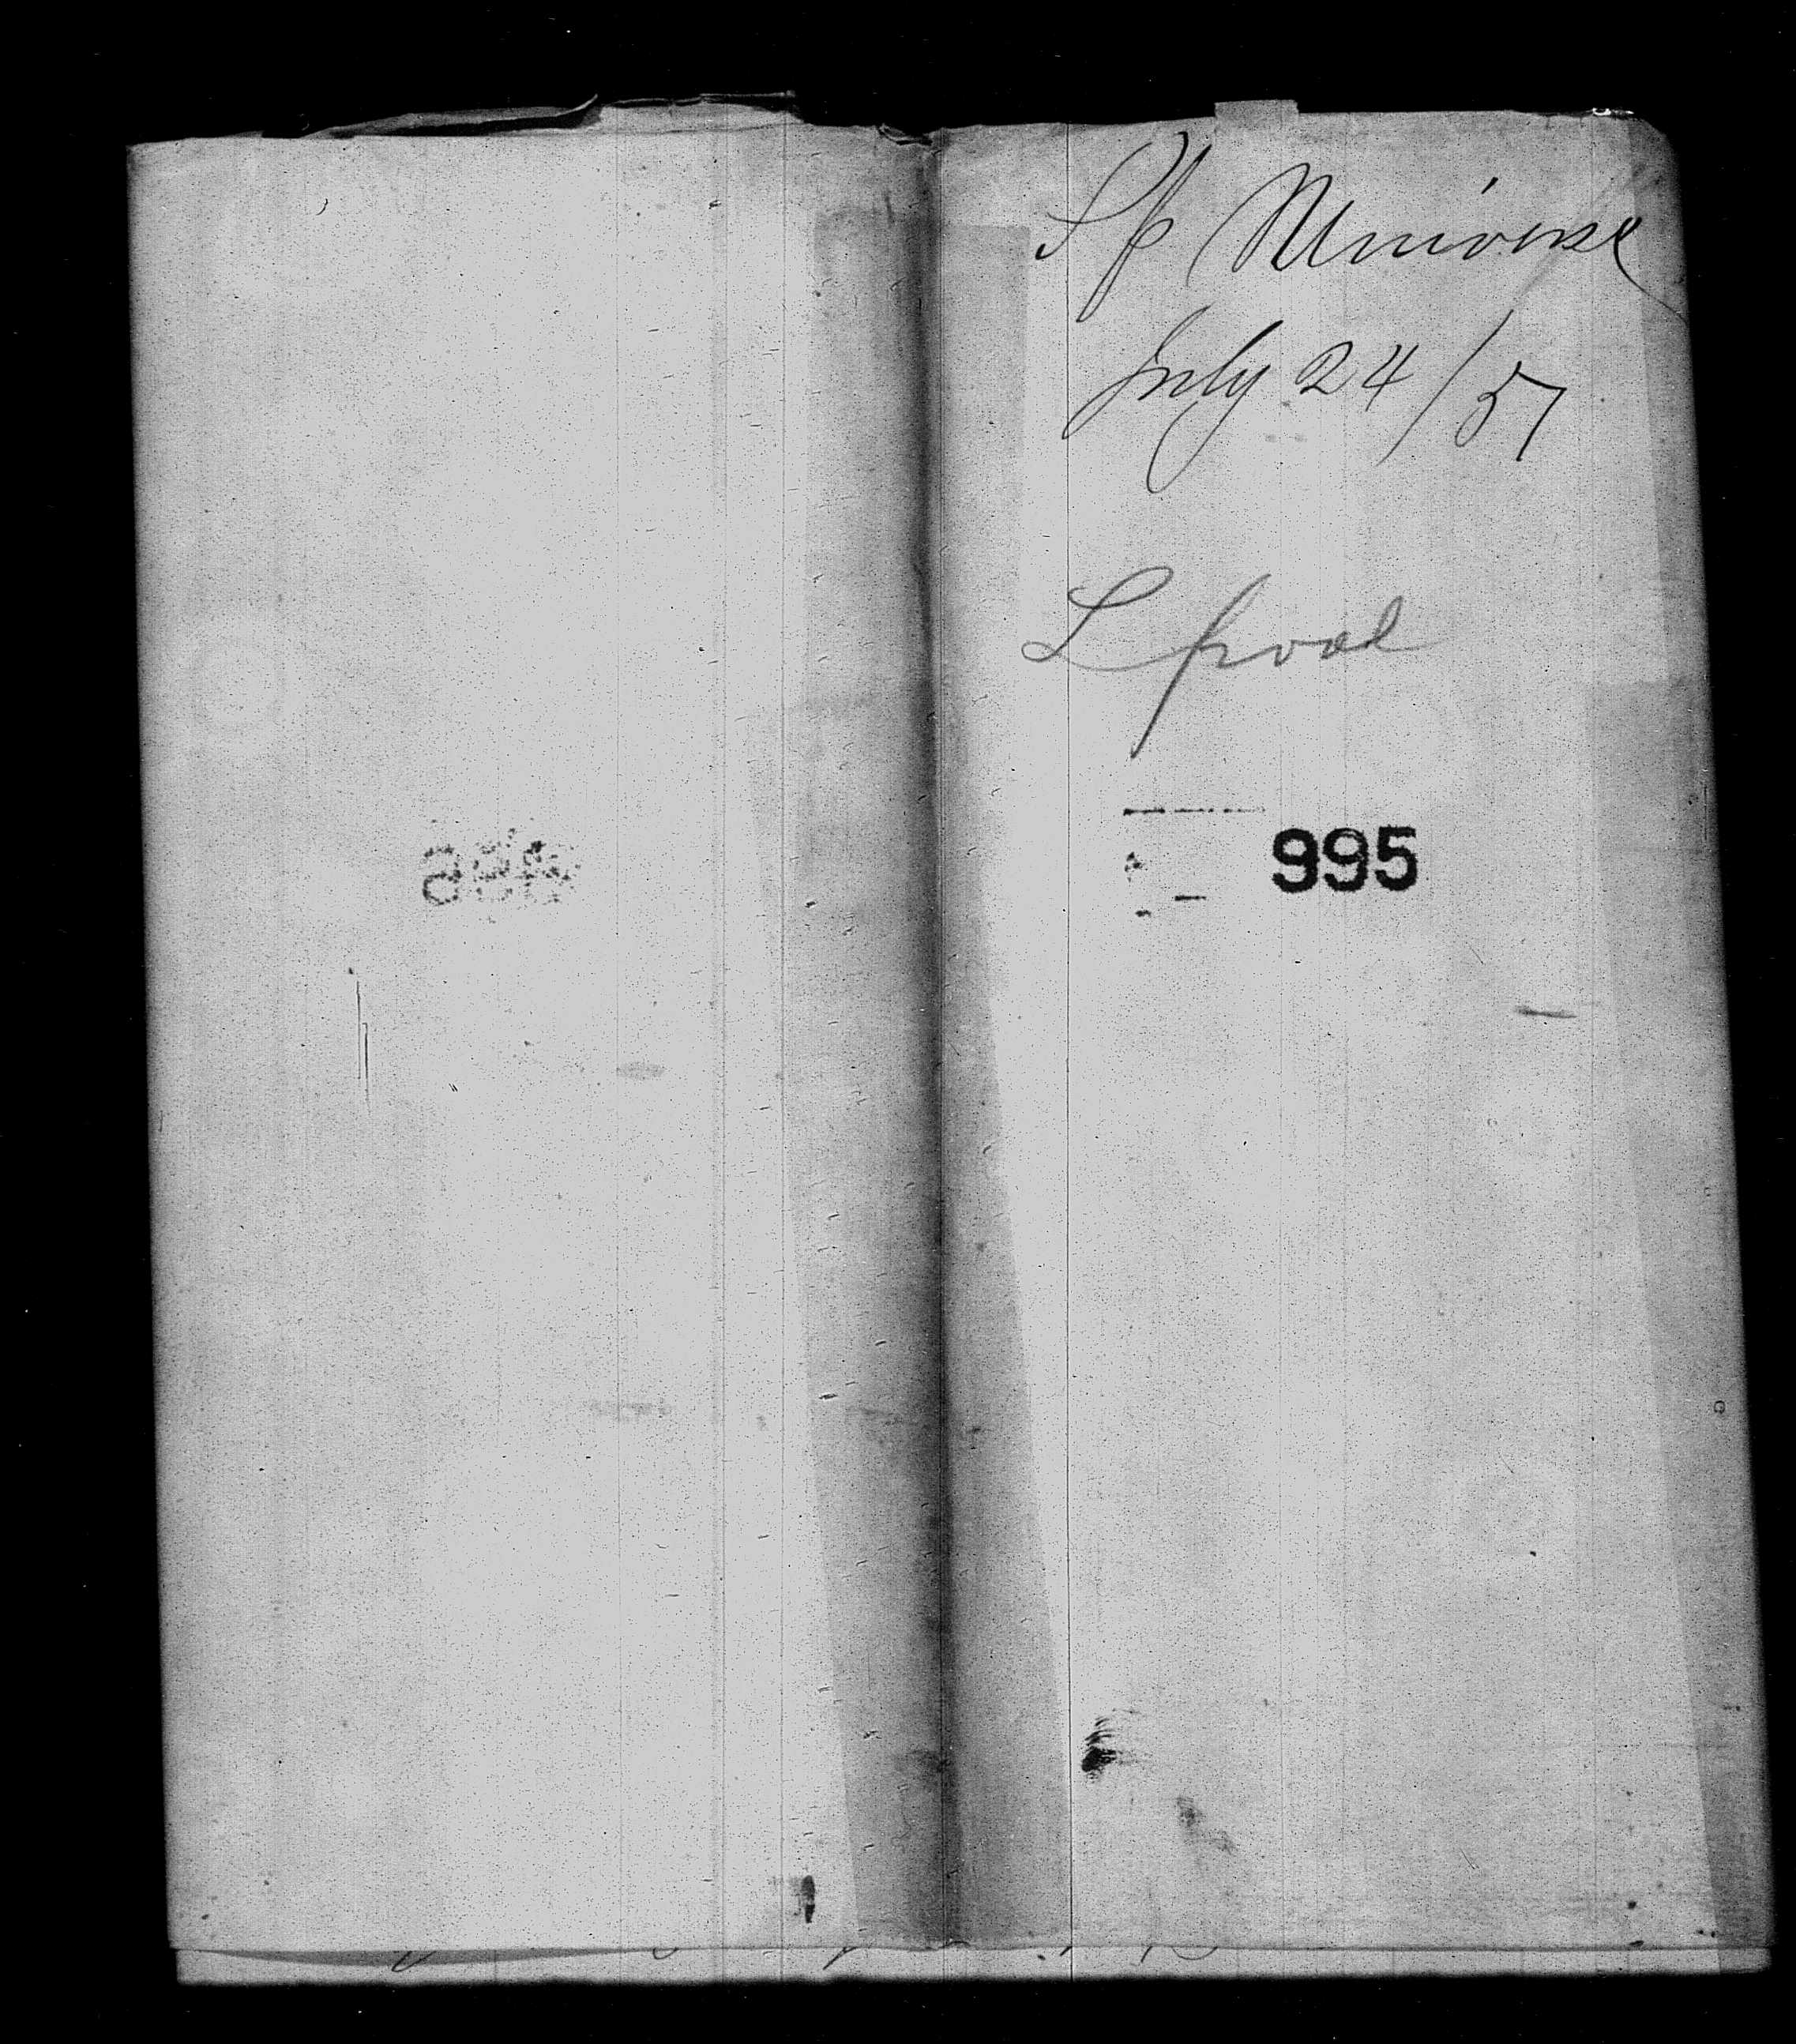 Sp Universe
July 24/57
Lpool
995